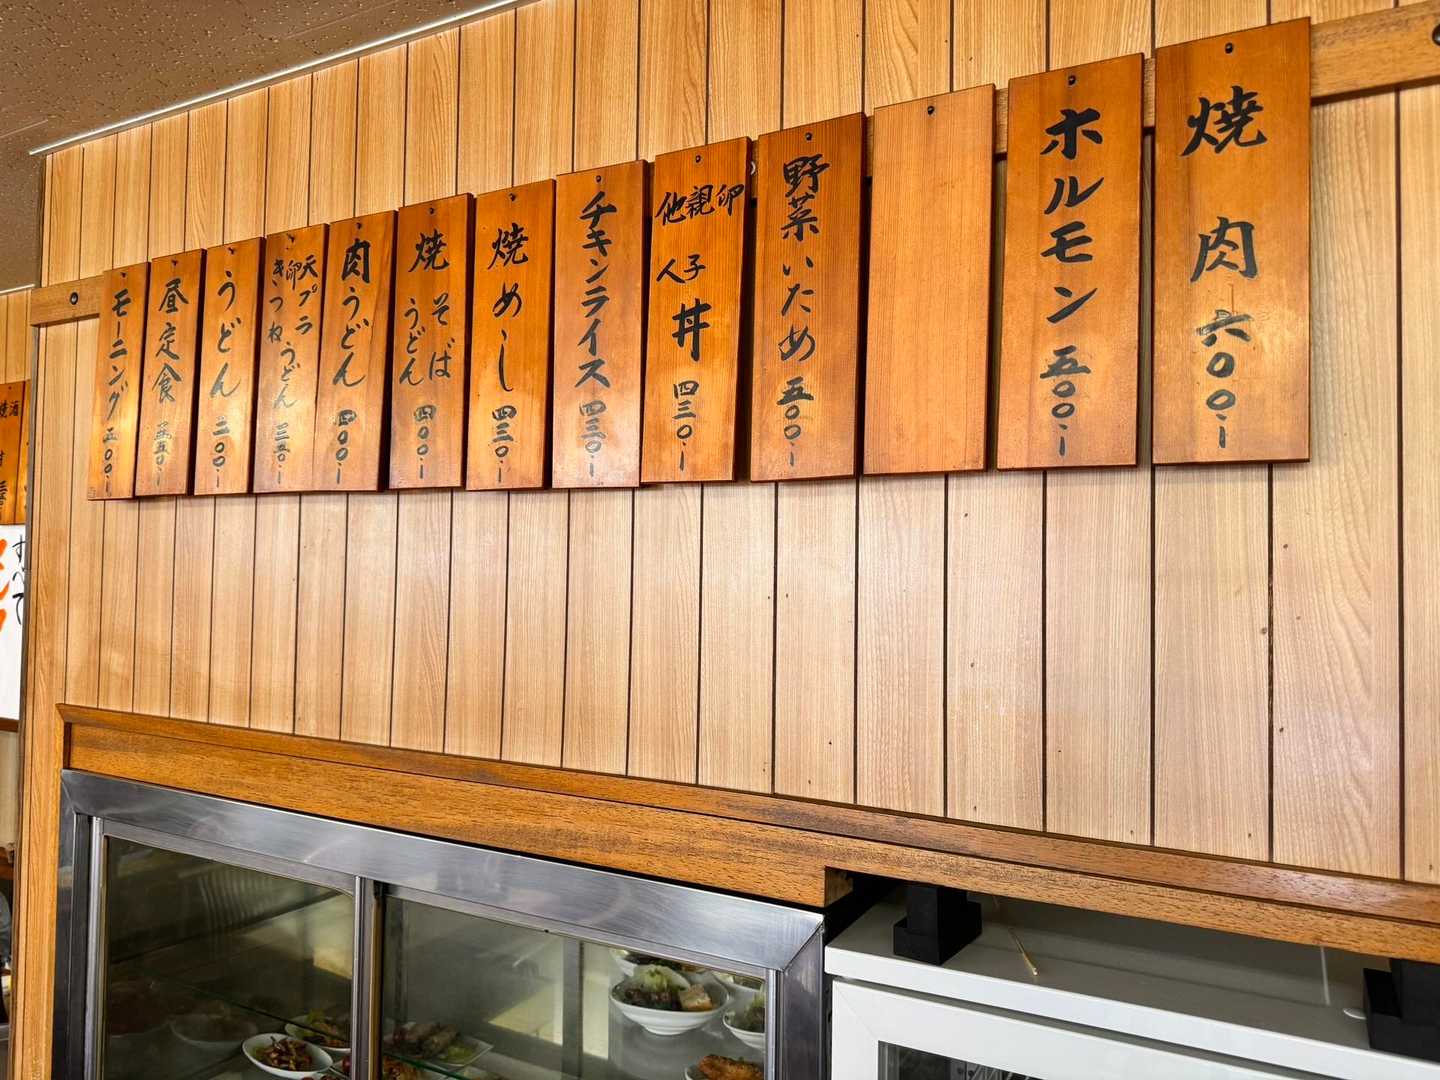 焼肉 六〇〇
ホルモン 五〇〇
野菜いため 五〇〇
卵
親子
他人
丼 四三〇
チキンライス 四三〇
焼めし 四三〇
焼
そば
うどん
四〇〇
肉うどん 四〇〇
天プラ
卵
きつね
うどん 三五〇
うどん 二〇〇
昼定食
モーニング 五〇〇
すべて